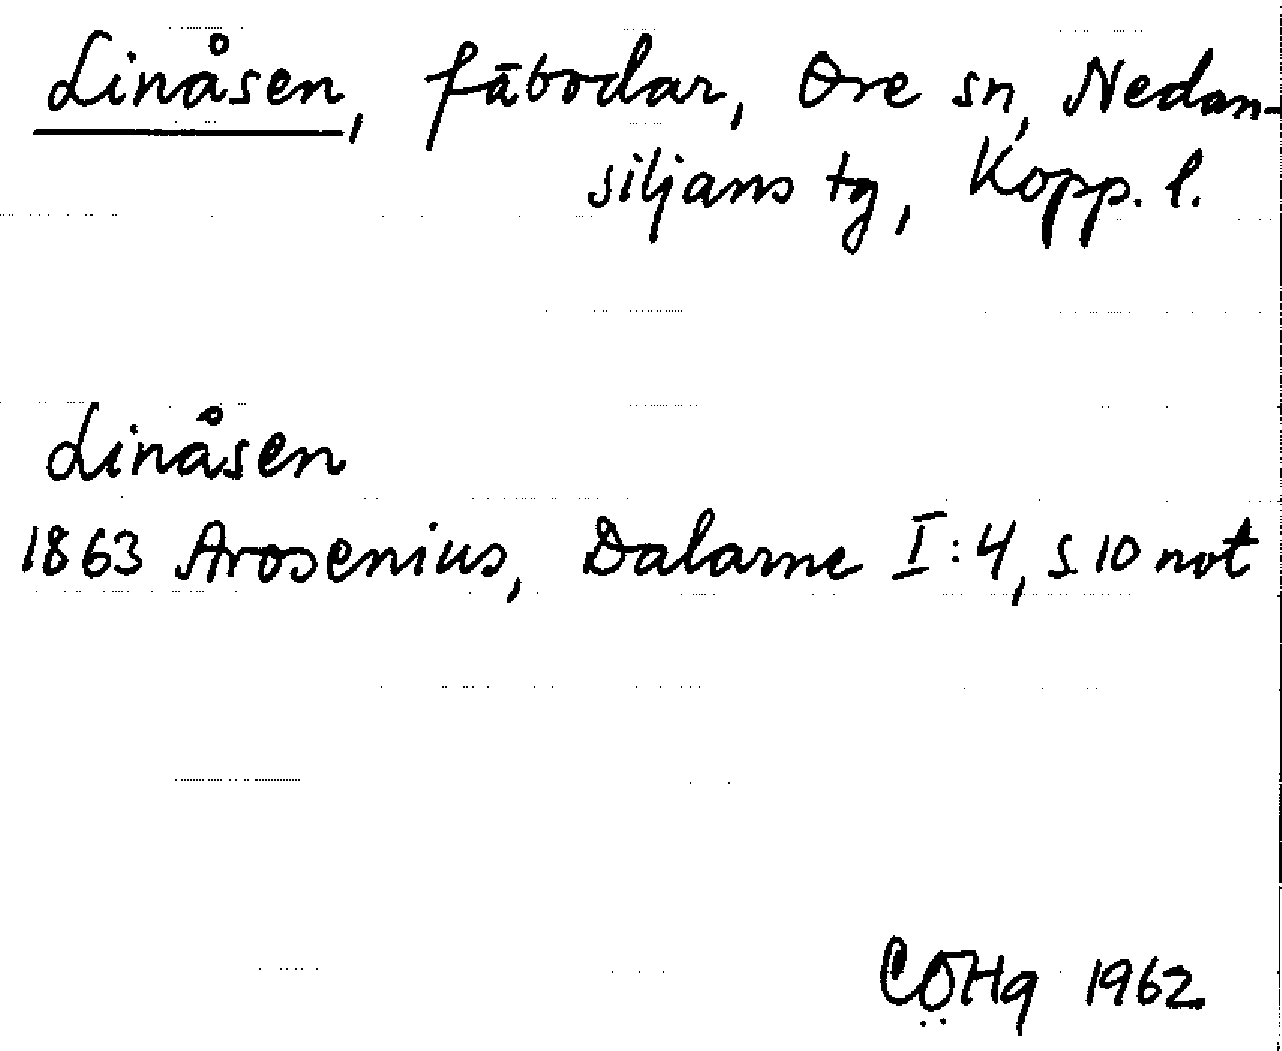 Linåsen, fäbodar, Ore sn, Nedan-
siljans tg, Kopp. l.
Linåsen
1863 Arosenius, Dalarne I:4, s. 10 not
CÖHg 1962